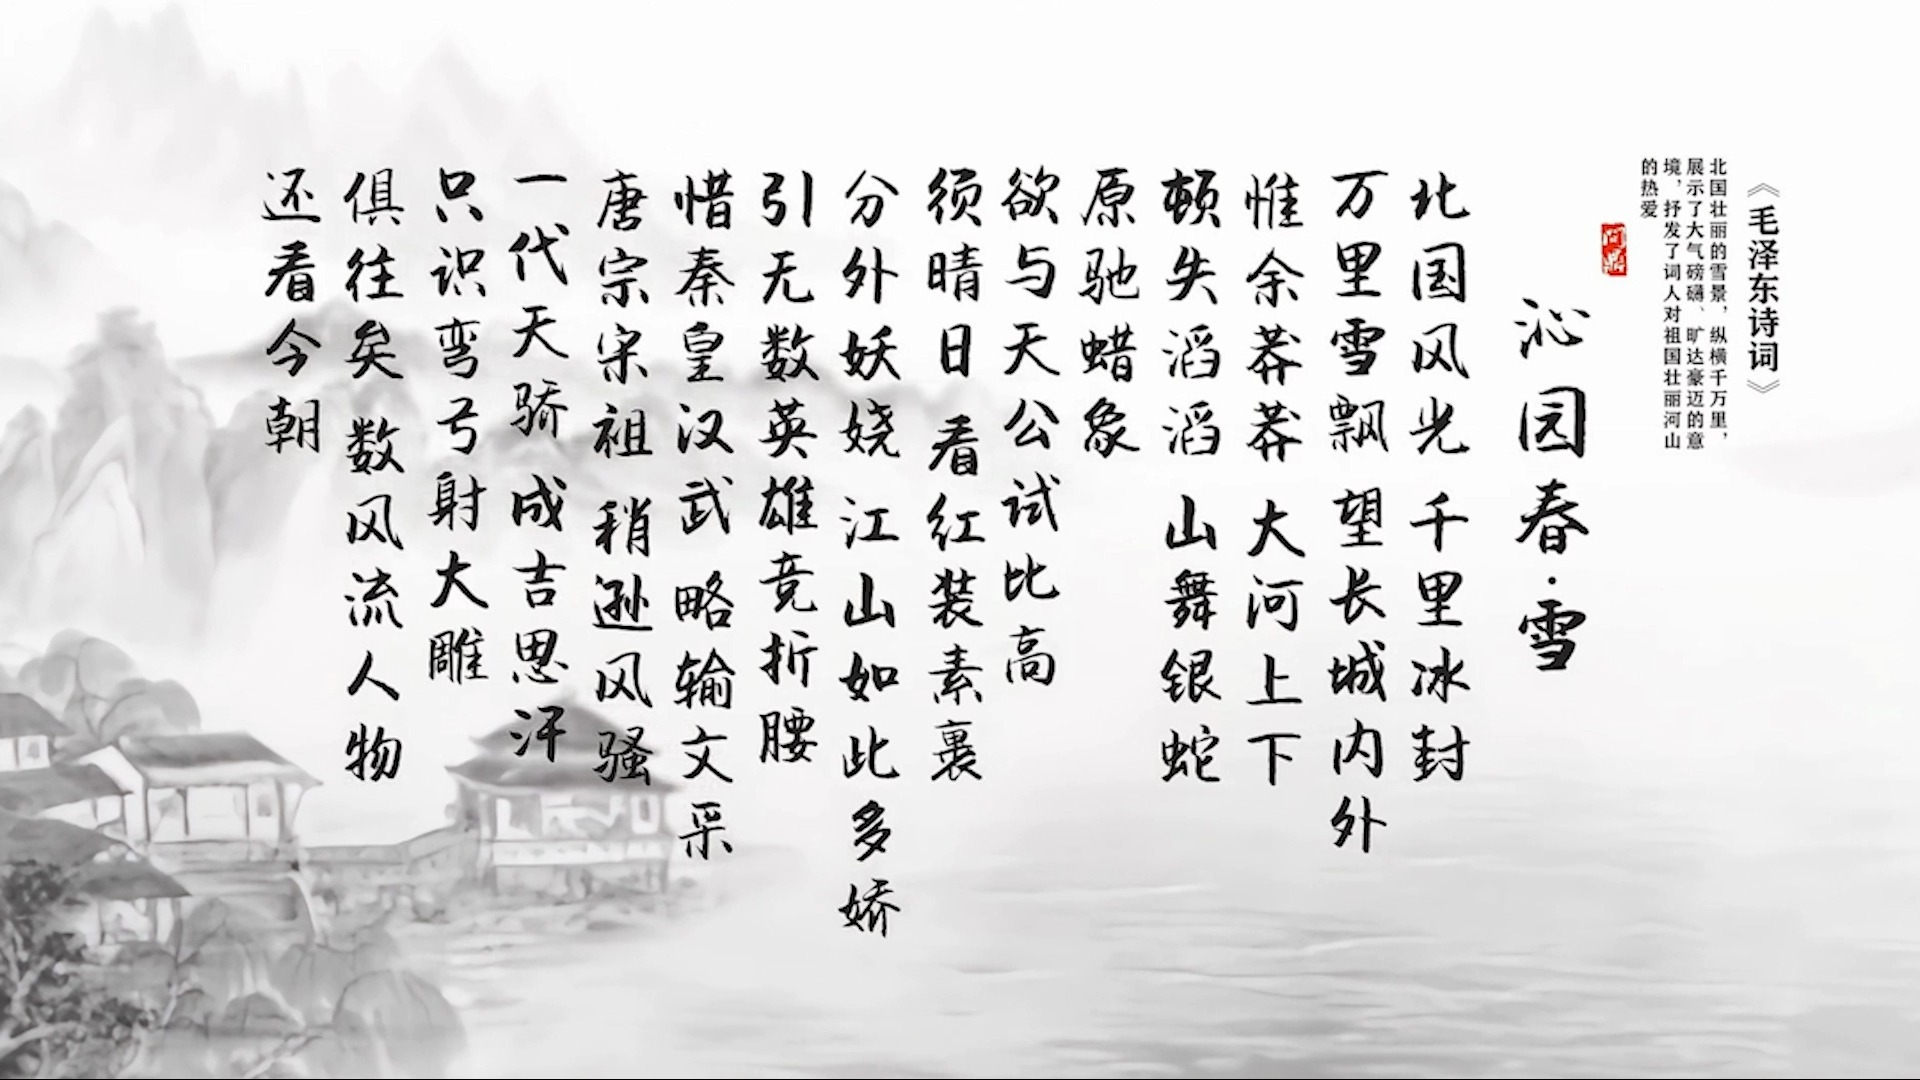 《毛泽东诗词》
北国壮丽的雪景，纵横千万里，
展示了大气磅礴、旷达豪迈的意
境，抒发了词人对祖国壮丽河山
的热爱
问鼎
沁园春·雪
北国风光 千里冰封
万里雪飘 望长城内外
惟余莽莽 大河上下
顿失滔滔 山舞银蛇
原驰蜡象
欲与天公试比高
须晴日 看红装素裹
分外妖娆 江山如此多娇
引无数英雄竞折腰
惜秦皇汉武 略输文采
唐宗宋祖 稍逊风骚
一代天骄 成吉思汗
只识弯弓射大雕
俱往矣 数风流人物
还看今朝